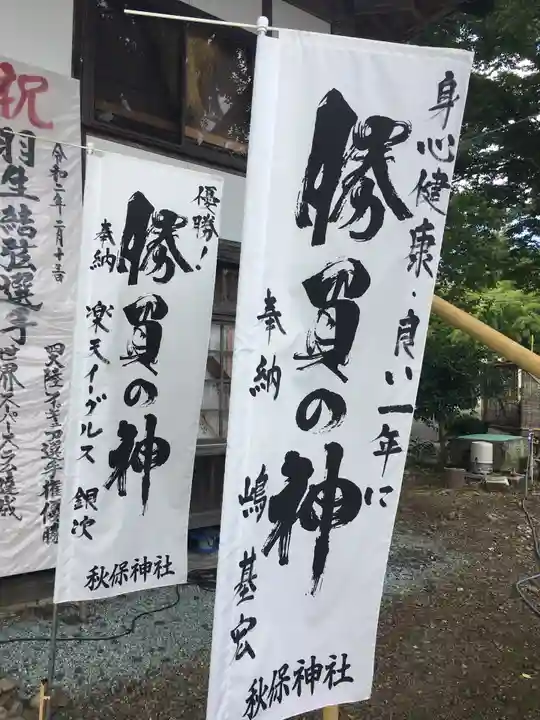 身心健康・良い一年に
勝負の神
奉納 嶋基宏
秋保神社
優勝!
勝負の神
奉納 楽天イーグルス 銀次
秋保神社
祝
羽生結弦選手
世界スーパースラム達成
四大陸フィギュア選手権優勝